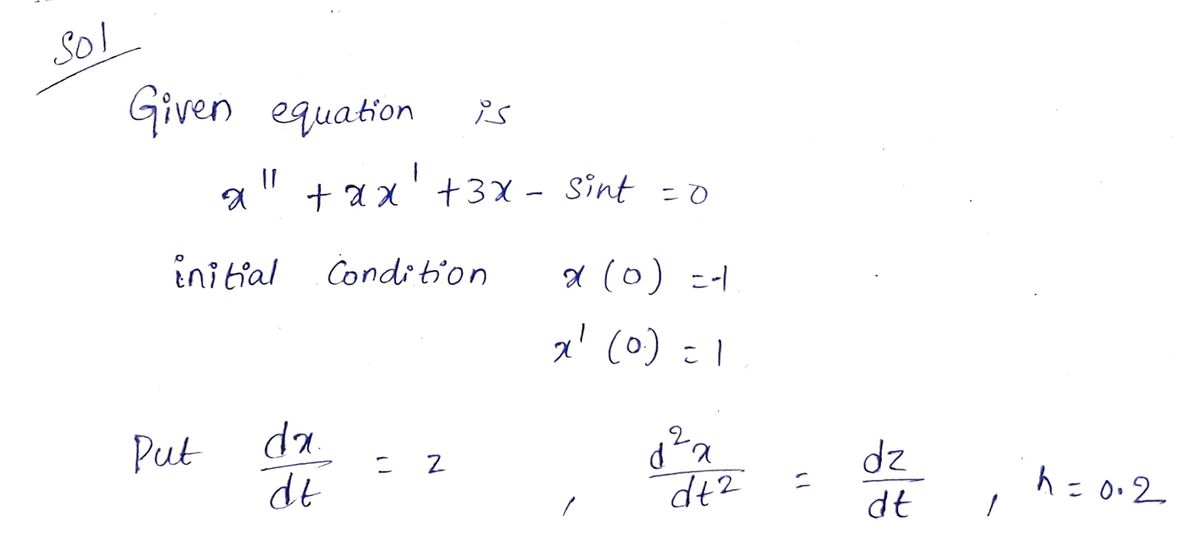 Sol
Given equation is
x'' + xx' + 3x - sint = 0
initial condition x(0) = -1
x'(0) = 1
Put dx/dt = z , d²x/dt² = dz/dt , h = 0.2